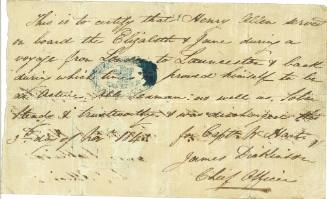 This is to certify that Henry Allen served
on board the Elizabeth & Jane during a
voyage from London to Launceston & back
during which time proved himself to be
an Active, Able Seaman: as well as, Sober
Steady & trustworthy & was discharged this
day of 184
for Captn W. Hart
James Dickinson
Chief Officer